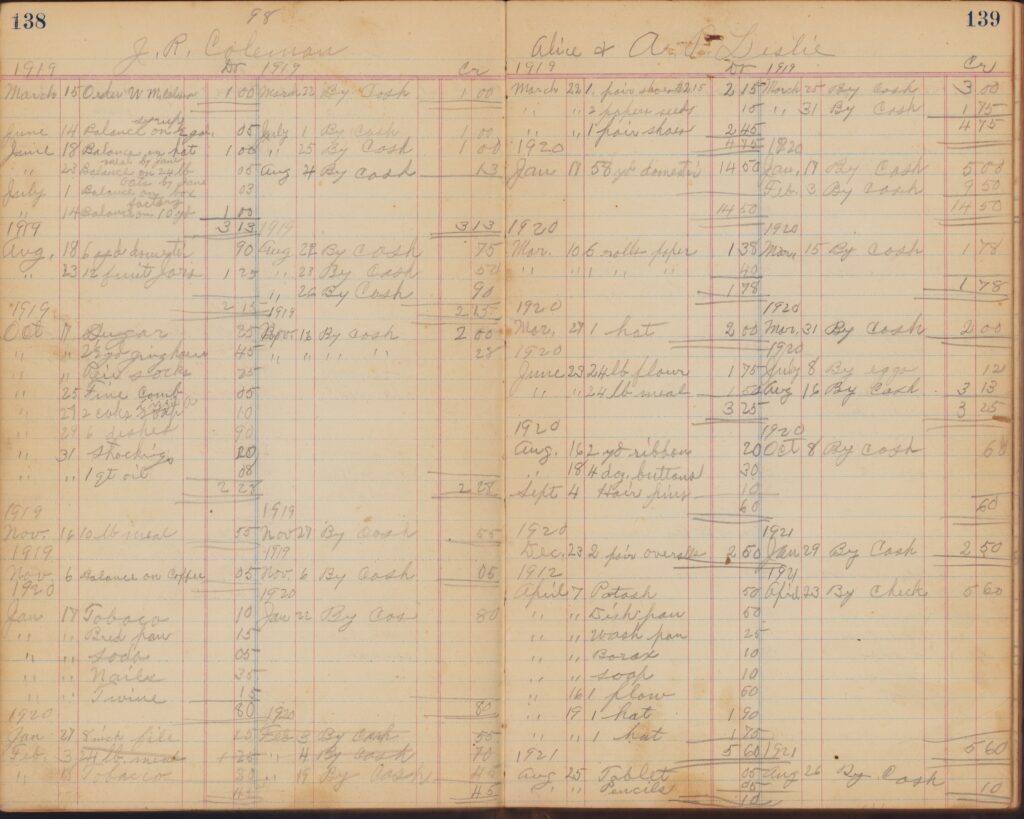 138
98
J. R. Coleman
1919 Dr 1919 Cr
March 15 Order W 1 00 March 22 By Cash 1 00
syrup
June 14 Balance on 05 July 1 By Cash 1 00
June 18 Balance on hat 1 00 " 25 By Cash 1 00
meal by Jane
" 23 Balance on 24 lb 05 Aug 4 By Cash 1 13
by Jane
July 1 Balance on box 03
factory
" 14 Balance on 10 yd 1 00
1919 3 13 1919 3 13
Aug. 18 6 yd domestic 90 Aug 22 By Cash 75
" 23 12 fruit jars 1 25 " 23 By Cash 50
" 26 By Cash 90
1919 2 15 1919 2 15
Oct 17 Sugar 25 Nov. 12 By Cash 2 00
" " 2½ yd gingham 45 " " " " 28
" " Pair socks 25
" 25 Fine Comb 05
" 27 2 cake soap 10
" 29 6 dishes 90
" 31 Stockings 20
" " 1 qt oil 08
2 28 2 28
1919 1919
Nov. 16 10 lb meal 55 Nov 27 By Cash 55
1919 1919
Nov. 6 Balance on Coffee 05 Nov. 6 By Cash 05
1920 1920
Jan 17 Tobaco 10 Jan 22 By Cas 80
" " Bred pan 15
" " Soda 05
" " Nails 35
" " Twine 15
1920 80 1920 80
Jan 27 8 inch file 15 Feb 3 By Cash 55
Feb. 3 lb. meal + 25 " 4 By Cash 70
" " Tobacco 30 " 19 By Cash 45
45 45
139
Alice & A. P. Leslie
1919 Dr 1919 Cr
March 22 1 pair shoes 2.15 2 15 March 25 By Cash 3 00
" " 2 papers seeds 15 " " 31 By Cash 1 75
" " 1 pair shoes 2 45 4 75
1920 4 75 1920
Jan 17 58 yd domestic 14 50 Jan, 17 By Cash 5 00
Feb. 3 By Cash 9 50
14 50 14 50
1920 1920
Mar. 10 6 rolls paper 1 38 Mar, 15 By Cash 1 78
" " " " " 40
1 78 1 78
1920 1920
Mar, 27 1 hat 2 00 Mar. 31 By Cash 2 00
1920 1920
June 23 24 lb flour 1 75 July 8 By eggs 12
" " 24 lb meal 1 50 Aug 16 By Cash 3 13
3 25 3 25
1920 1920
Aug. 16 2 yd ribbon 20 Oct 8 By Cash 60
" 18 4 doz. buttons 30
Sept 4 Hair pins 10
60 60
1920 1921
Dec. 23 2 pair overalls 2 50 Jan 29 By Cash 2 50
1912 1921
April 7 Potash 50 April 23 By Check 5 60
" " Dish pan 50
" " Wash pan 25
" " Borax 10
" " soap 10
" 16 1 plow 60
" 19 1 hat 1 90
" " 1 hat 1 75
1921 5 60 1921 5 60
Aug 25 Tablet 05 Aug 26 By Cash 10
" " Pencils 05
10